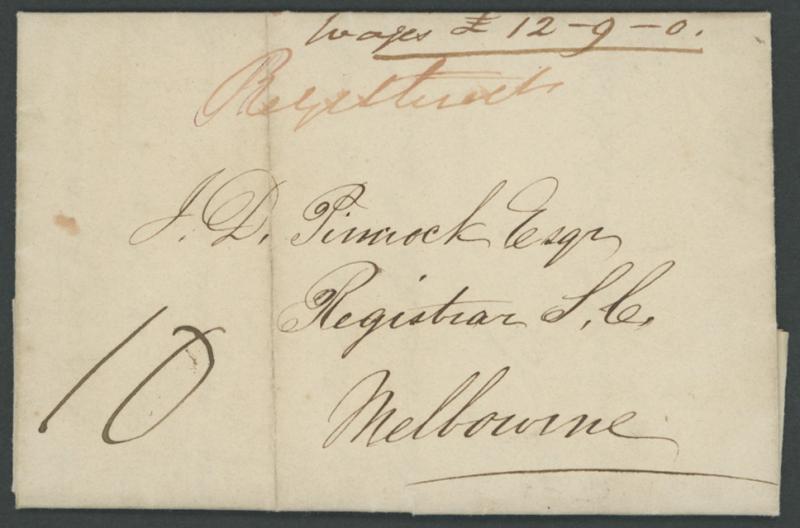 Wages £ 12-9-0.
Registered
J. D. Pinnock Esqr
Registrar S. C.
Melbourne
10